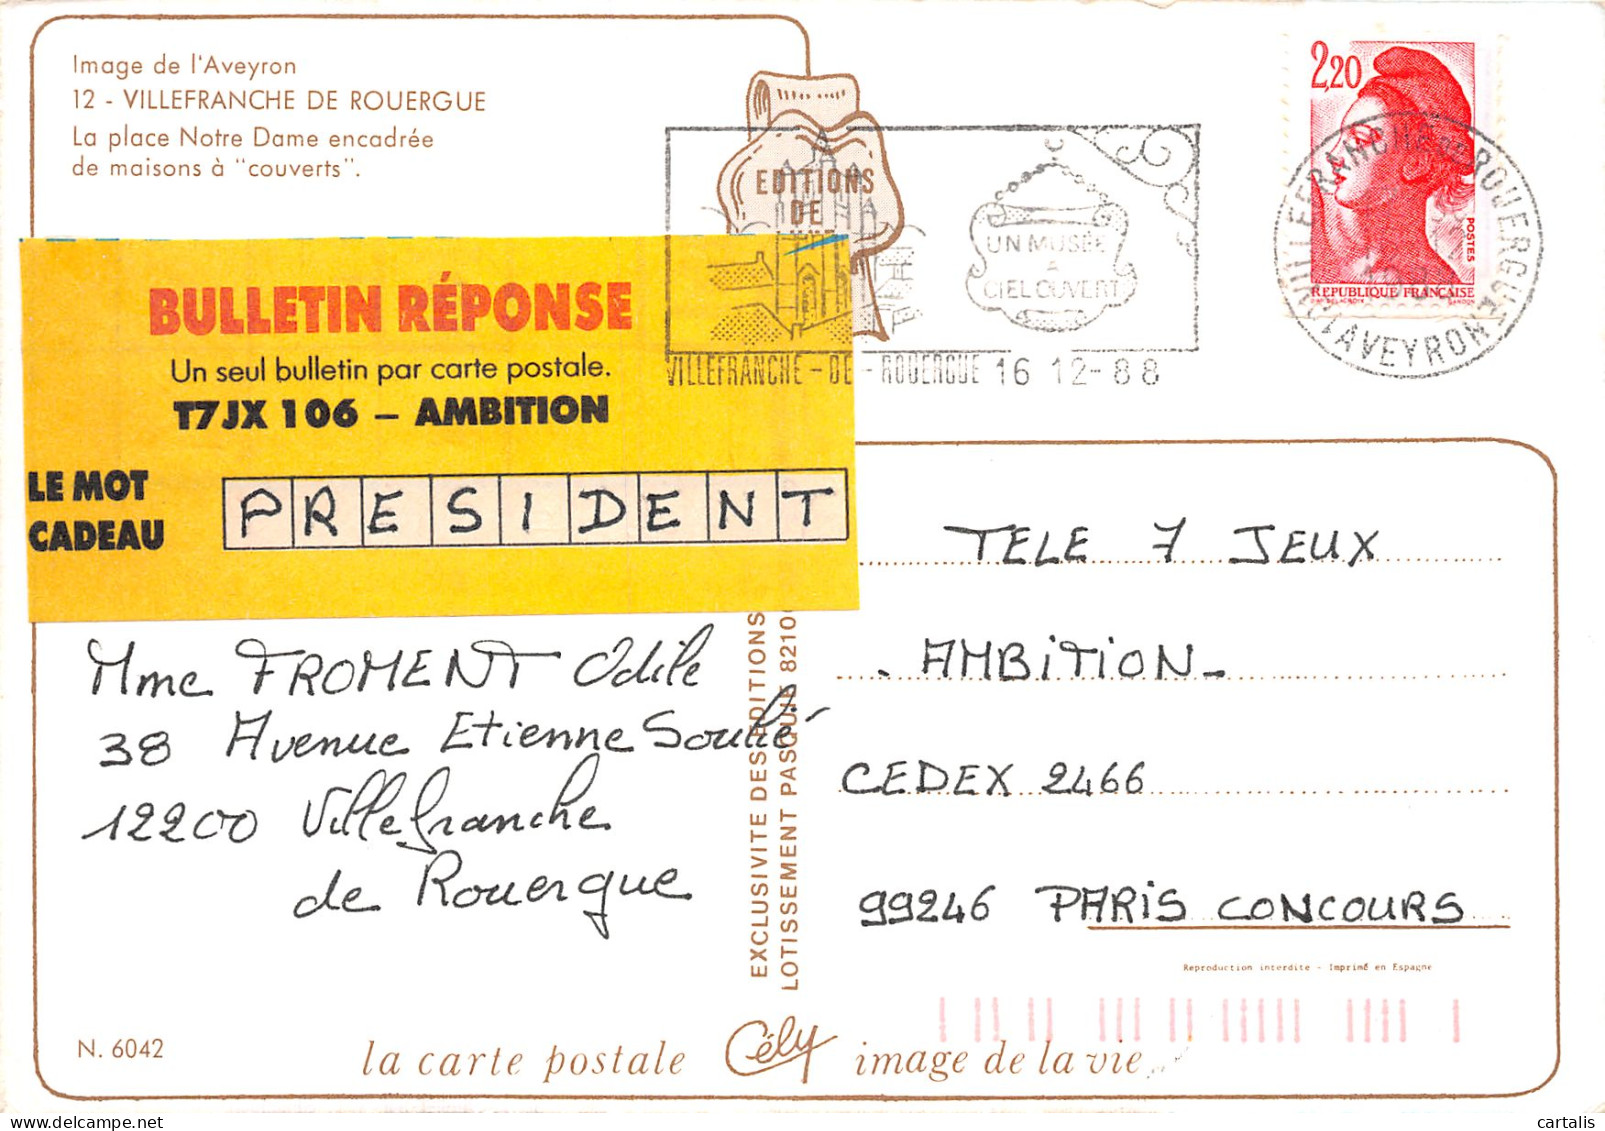 Image de l'Aveyron
12 - VILLEFRANCHE DE ROUERGUE
La place Notre Dame encadrée
de maisons à "couverts".
EDITIONS
DE
UN MUSÉE
A
CIEL OUVERT
VILLEFRANCHE - DE - ROUERGUE 16 12-88
2,20
POSTES
REPUBLIQUE FRANÇAISE
VILLEFRANCHE DE ROUERGUE
AVEYRON
BULLETIN RÉPONSE
Un seul bulletin par carte postale.
T7JX 106 – AMBITION
LE MOT
CADEAU
PRESIDENT
Mme FROMENT Odile
38 Avenue Etienne Soulié
12200 Villefranche
de Rouergue
EXCLUSIVITE DES EDITIONS
LOTISSEMENT PASQUIE 8210
TELE 7 JEUX
- AMBITION -
CEDEX 2466
99246 PARIS CONCOURS
Reproduction interdite - Imprimé en Espagne
N. 6042
la carte postale Cély image de la vie
cartalis